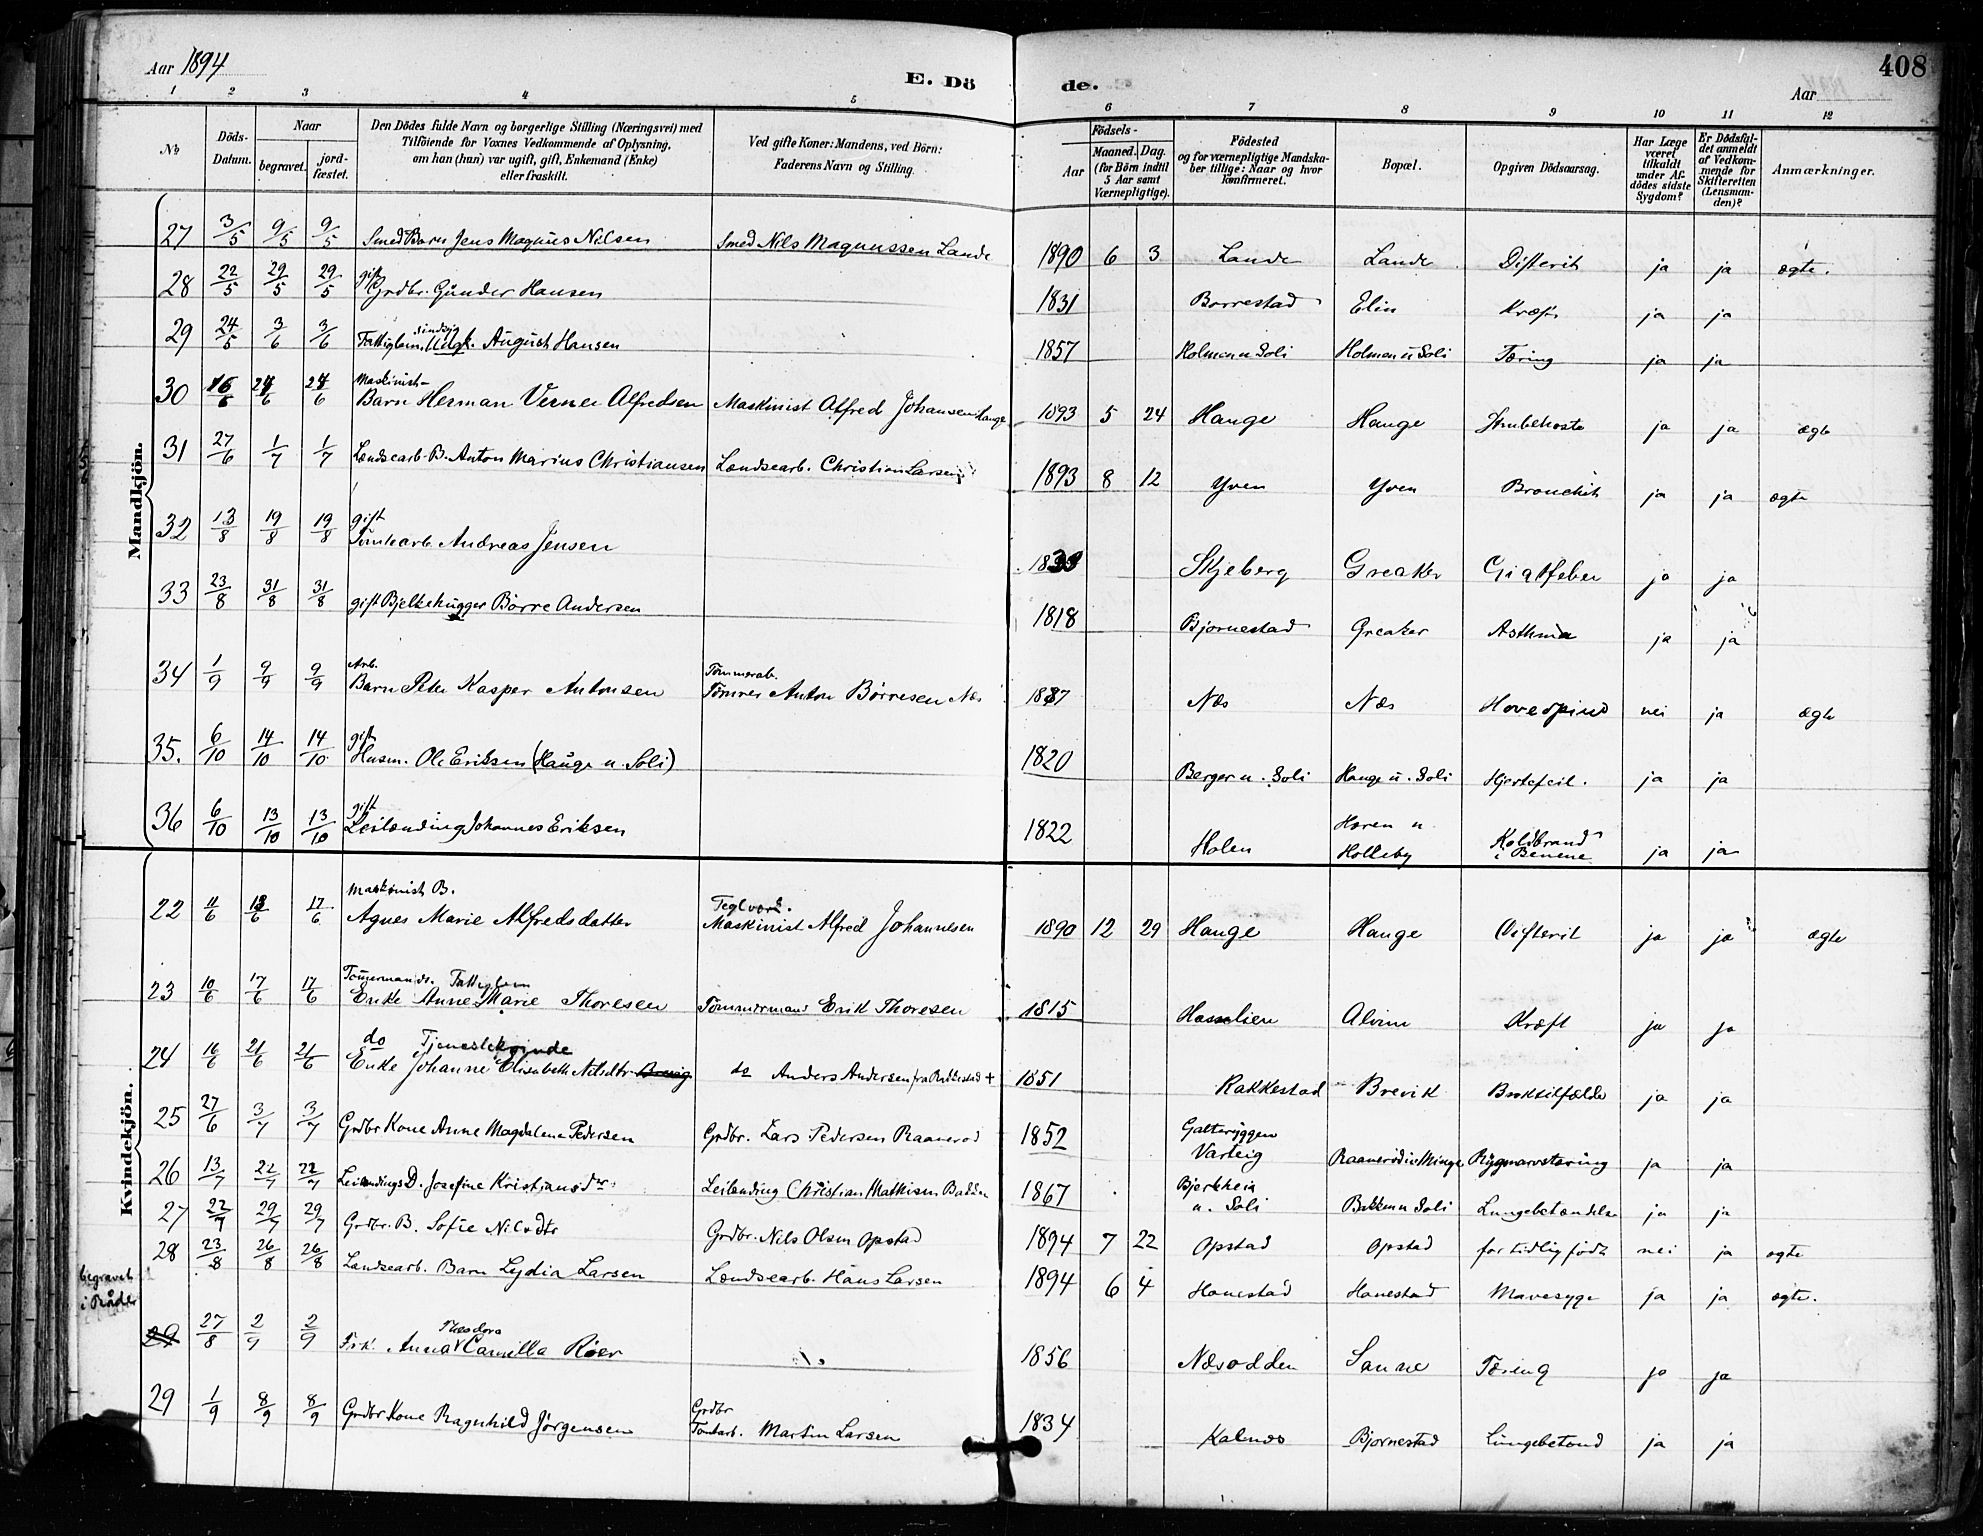 Aar 1894
E. Döde.
408
Aar
1 2 3 4 5 6 7 8 9 10 11 12
No
Döds-Datum.
Naar
begravet.
jord-fæstet.
Den Dödes fulde Navn og borgerlige Stilling (Næringsvei) med
Tilföiende for Voxnes Vedkommende af Oplysning,
om han (hun) var ugift, gift, Enkemand (Enke)
eller fraskilt.
Ved gifte Koner: Mandens, ved Börn:
Faderens Navn og Stilling.
Födsels-
Aar
Maaned. Dag.
(for Börn indtil
5 Aar samt
Værnepligtige).
Födested
og for værnepligtige Mandska-
ber tillige: Naar og hvor
konfirmeret.
Bopæl.
Opgiven Dödsaarsag.
Har Læge
været
tilkaldt
under Af-
dödes sidste
Sygdom?
Er Dödsfal-
det anmeldt
af Vedkom-
mende for
Skifteretten
(Lensman-
den)?
Anmærkninger.
Mandkjön.
27 3/5 9/5 9/5 Smed Barn Jens Magnus Nilsen Smed Nils Magnussen Lande 1890 6 3 Lande Lande Difterit ja ja ægte.
28 22/5 29/5 29/5 gift Grdbr. Gunder Hansen 1831 Borrestad Elin Kræft ja ja
29 24/5 3/6 3/6 Fattiglem, sindssyg Ungk. August Hansen 1857 Holmen u Soli Holmen u Soli Tæring ja ja
30 16/6 24/6 24/6 Maskinist-
Barn Herman Verner Alfredsen Maskinist Alfred Johansen Hauge 1893 5 24 Hauge Hauge Strubehoste ja ja ægte
31 27/6 1/7 1/7 Landsearb. B. Anton Marius Christiansen Landsearb. Christian Larsen 1893 8 12 Yven Yven Bronchit ja ja ægte
32 13/8 19/8 19/8 gift
Tomtearb. Andreas Jensen Skjeberg Greaker Giktfeber ja ja
33 23/8 31/8 31/8 gift Bjelkehugger Börre Andersen 1818 Bjornestad Greaker Asthma ja ja
34 1/9 9/9 9/9 Arb.
Barn Peter Kasper Antonsen Tömmerarb.
Tömrer Anton Börresen Næs 1887 Næs Næs nei ja ægte
35. 6/10 14/10 14/10 gift
Husm. Ole Eriksen (Hauge u. Soli) 1820 Berger u. Soli Hauge u. Soli Hjertefeil. ja ja
36 6/10 13/10 13/10 gift
Leilænding Johannes Eriksen 1822 Holen Haren u
Holleby Koldbrand
i Benene ja ja
Kvindekjön.
22 11/6 18/6 17/6 Maskinist B.
Agnes Marie Alfredsdatter Teglværk.
Maskinist Alfred Johannesen 1890 12 29 Hauge Hauge Difterit ja ja ægte
23 10/6 17/6 17/6 Tömermands. Fattiglem
Enke Anne Marie Thoresen Tömmermand Erik Thoresen 1815 Hasselien Alvim Kræft ja ja
24 16/6 21/6 21/6 do Tjenestekvinde
Enke Johanne Elisabeth Nilsdtr. do Anders Andersen fra Rakkestad + 1851 Rakkestad Brevik ja ja
25 27/6 3/7 3/7 Grdbr Kone Anne Magdalene Pedersen Grdbr. Lars Pedersen Raanerod 1852 Galteryggen
Varteig Raanerod u Minge Rygmarvstæring ja ja
26 13/7 22/7 22/7 Leilændings D. Josefine Kristiansdtr. Leilending Christian Mathisen Bakken 1867 Bjerkheim
u. Soli Bakken u Soli Lungebetændelse ja ja
27 22/7 29/7 29/7 Grdbr. B. Sofie Nilsdtr Grdbr. Nils Olsen Opstad 1894 7 22 Opstad Opstad for tidlig født nei ja ægte
28 23/8 26/8 26/8 Landsearb. Barn Lydia Larsen Landsearb. Hans Larsen 1894 6 4 Hanestad Hanestad Mavesyge ja ja ægte.
begravet
i Råde
29 27/8 2/9 2/9 Frk. Anna Theodora Camilla Röer 1856 Næsodden Sanne Tæring ja ja
29 1/9 8/9 8/9 Grdbr Kone Ragnhild Jörgensen Grdbr
Tomtarb. Martin Larsen 1834 Kalnæs Bjørnestad Lungebetænd ja ja